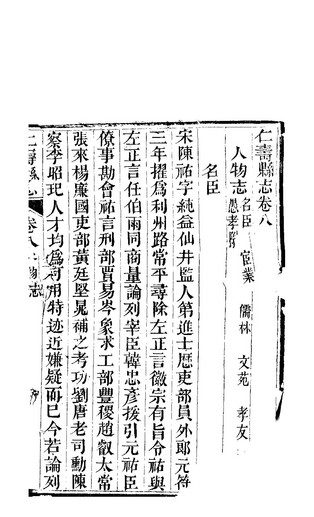 仁壽縣志卷八
人物志 名臣 宦業 儒林 文苑 孝友
愚孝附
名臣
宋陳祐字純益仙井監人第進士歷吏部員外郎元符
三年擢為利州路常平尋除左正言徽宗有旨令祐與
左正言任伯雨同商量論列宰臣韓忠彥援引元祐臣
僚事勘會祐言刑部賈易岑象求工部豐稷趙叡太常
張來楊康國吏部黃廷堅晁補之考功劉唐老司勳陳
察李昭玘人才均為可用特迹近嫌疑而已今若論列
仁壽縣志 卷八 人物志